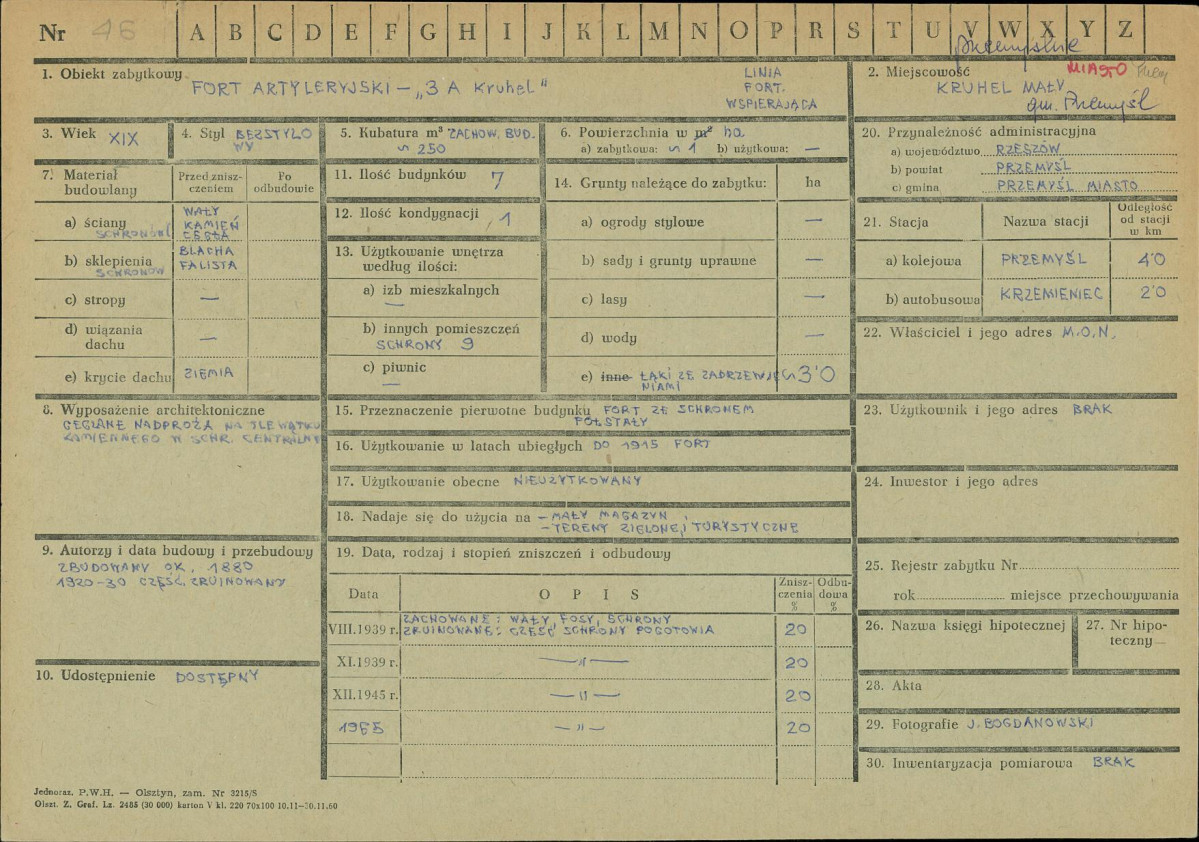 Nr 46 A B C D E F G H I J K L M N O P R S T U V W X Y Z
przemyskie
1. Obiekt zabytkowy FORT ARTYLERYJSKI – „3 A Kruhel"
LINIA
FORT.
WSPIERAJĄCA
2. Miejscowość MIASTO
KRUHEL MAŁY
gm. Przemyśl
3. Wiek XIX
4. Styl BEZSTYLO
WY
5. Kubatura m³ ZACHOW. BUD.
∽ 250
6. Powierzchnia w m² ha
a) zabytkowa: ∽ 1 b) użytkowa: —
7. Materiał budowlany
Przed znisz-
czeniem
Po
odbudowie
a) ściany SCHRONÓW
WAŁY
KAMIEŃ
CEGŁA
b) sklepienia SCHRONÓW
BLACHA
FALISTA
c) stropy —
d) wiązania
dachu —
e) krycie dachu ZIEMIA
8. Wyposażenie architektoniczne
CEGLANE NADPROŻA NA TLE WĄTKU
KAMIENNEGO W SCHR. CENTRALNYM
9. Autorzy i data budowy i przebudowy
ZBUDOWANY OK. 1880
1920-30 CZĘŚĆ. ZRUINOWANY
10. Udostępnienie DOSTĘPNY
11. Ilość budynków 7
12. Ilość kondygnacji 1
13. Użytkowanie wnętrza
według ilości:
a) izb mieszkalnych
—
b) innych pomieszczeń
SCHRONY 9
c) piwnic
—
14. Grunty należące do zabytku: ha
a) ogrody stylowe —
b) sady i grunty uprawne —
c) lasy —
d) wody —
e) inne ŁĄKI ZE ZADRZEWIE
NIAMI ∽ 3'0
15. Przeznaczenie pierwotne budynku FORT ZE SCHRONEM
PÓŁSTAŁY
16. Użytkowanie w latach ubiegłych DO 1915 FORT
17. Użytkowanie obecne NIEUŻYTKOWANY
18. Nadaje się do użycia na – MAŁY MAGAZYN,
– TERENY ZIELONE, TURYSTYCZNE
19. Data, rodzaj i stopień zniszczeń i odbudowy
Data
O P I S
Znisz-
czenia
%
Odbu-
dowa
%
VIII.1939 r.
ZACHOWANE: WAŁY, FOSY, SCHRONY
ZRUINOWANE: CZĘŚĆ. SCHRONY POGOTOWIA
20
XI.1939 r. —〃— 20
XII.1945 r. —〃— 20
1965 —〃— 20
20. Przynależność administracyjna
a) województwo RZESZÓW
b) powiat PRZEMYŚL
c) gmina PRZEMYŚL MIASTO
21. Stacja
Nazwa stacji
Odległość
od stacji
w km
a) kolejowa PRZEMYŚL 4'0
b) autobusowa KRZEMIENIEC 2'0
22. Właściciel i jego adres M.O.N.
23. Użytkownik i jego adres BRAK
24. Inwestor i jego adres
25. Rejestr zabytku Nr
rok miejsce przechowywania
26. Nazwa księgi hipotecznej
27. Nr hipo-
teczny —
28. Akta
29. Fotografie J. BOGDANOWSKI
30. Inwentaryzacja pomiarowa BRAK
Jednoraz. P.W.H. — Olsztyn, zam. Nr 3215/S
Olszt. Z. Graf. Lz. 2485 (30 000) karton V kl. 220 70x100 10.11—30.11.60